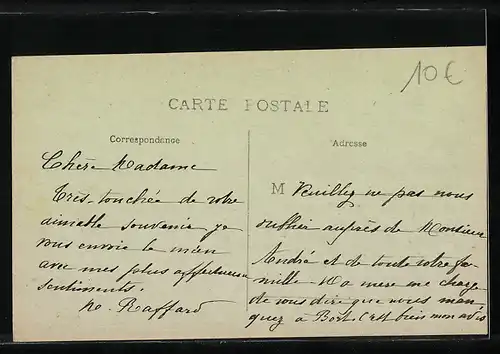 10€
CARTE POSTALE
Correspondance
Chère Madame
Très touchée de votre
aimable souvenir je
vous envoie le mien
avec mes plus affectueux
sentiments.
Raffard
Adresse
M Veuillez ne pas nous
oublier auprès de Monsieur
André et de toute votre fa-
mille. Ma mère me charge
de vous dire que vous man
quez à Bort. C'est bien mon avis